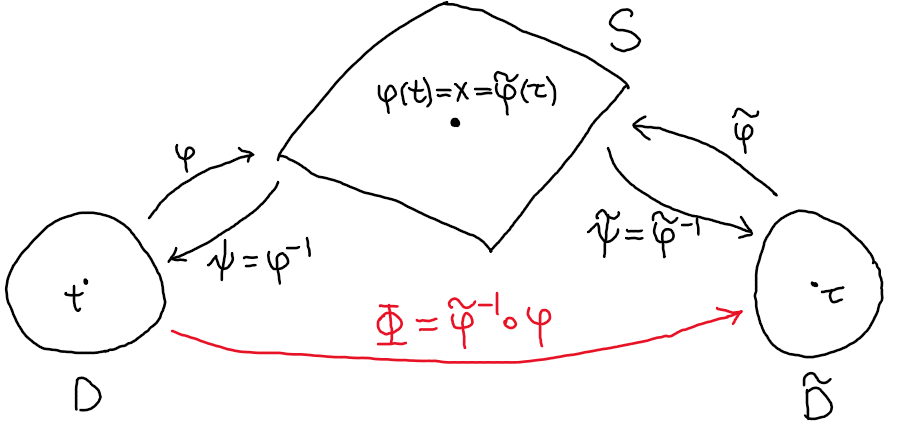 S
φ(t)=x=φ̃(τ)
φ
φ̃
ψ=φ⁻¹
ψ̃=φ̃⁻¹
t
τ
Φ=φ̃⁻¹∘φ
D
D̃